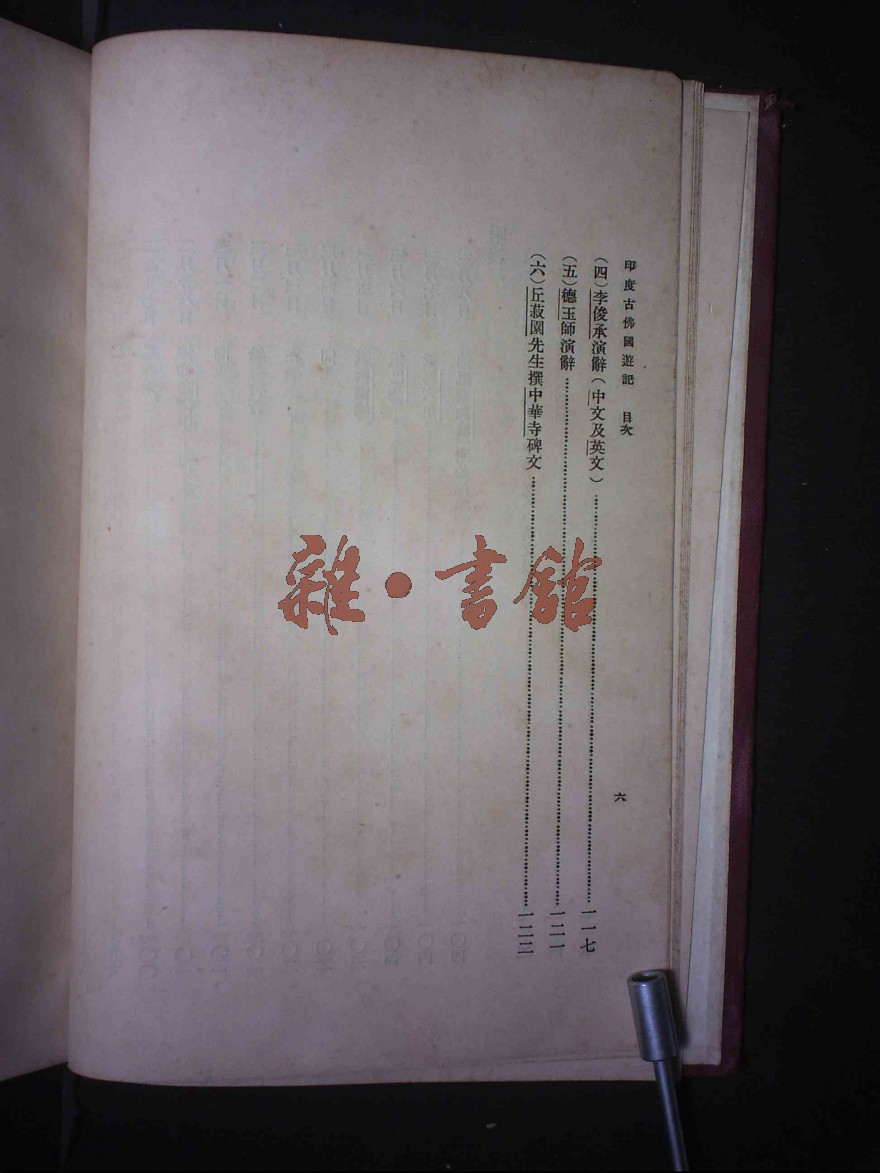 印度古佛國遊記 目次
六
(四)李俊承演辭(中文及英文)……一一七
(五)德玉師演辭……一二一
(六)丘菽園先生撰中華寺碑文……一二三
雜·書館